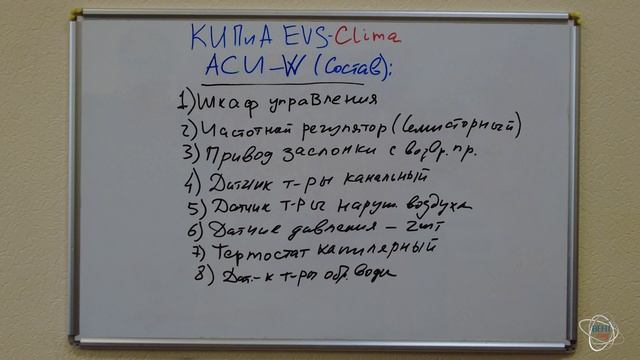 КИПиА EVS-Clima
АСИ-W (Состав):
1) Шкаф управления
2) Частотный регулятор (Семисторный)
3) Привод заслонки с возвр. пр.
4) Датчик т-ры канальный
5) Датчик т-ры наруж. воздуха
6) Датчие давления – 2шт
7) Термостат капилярный
8) Дат.-к т-ры обр. воды